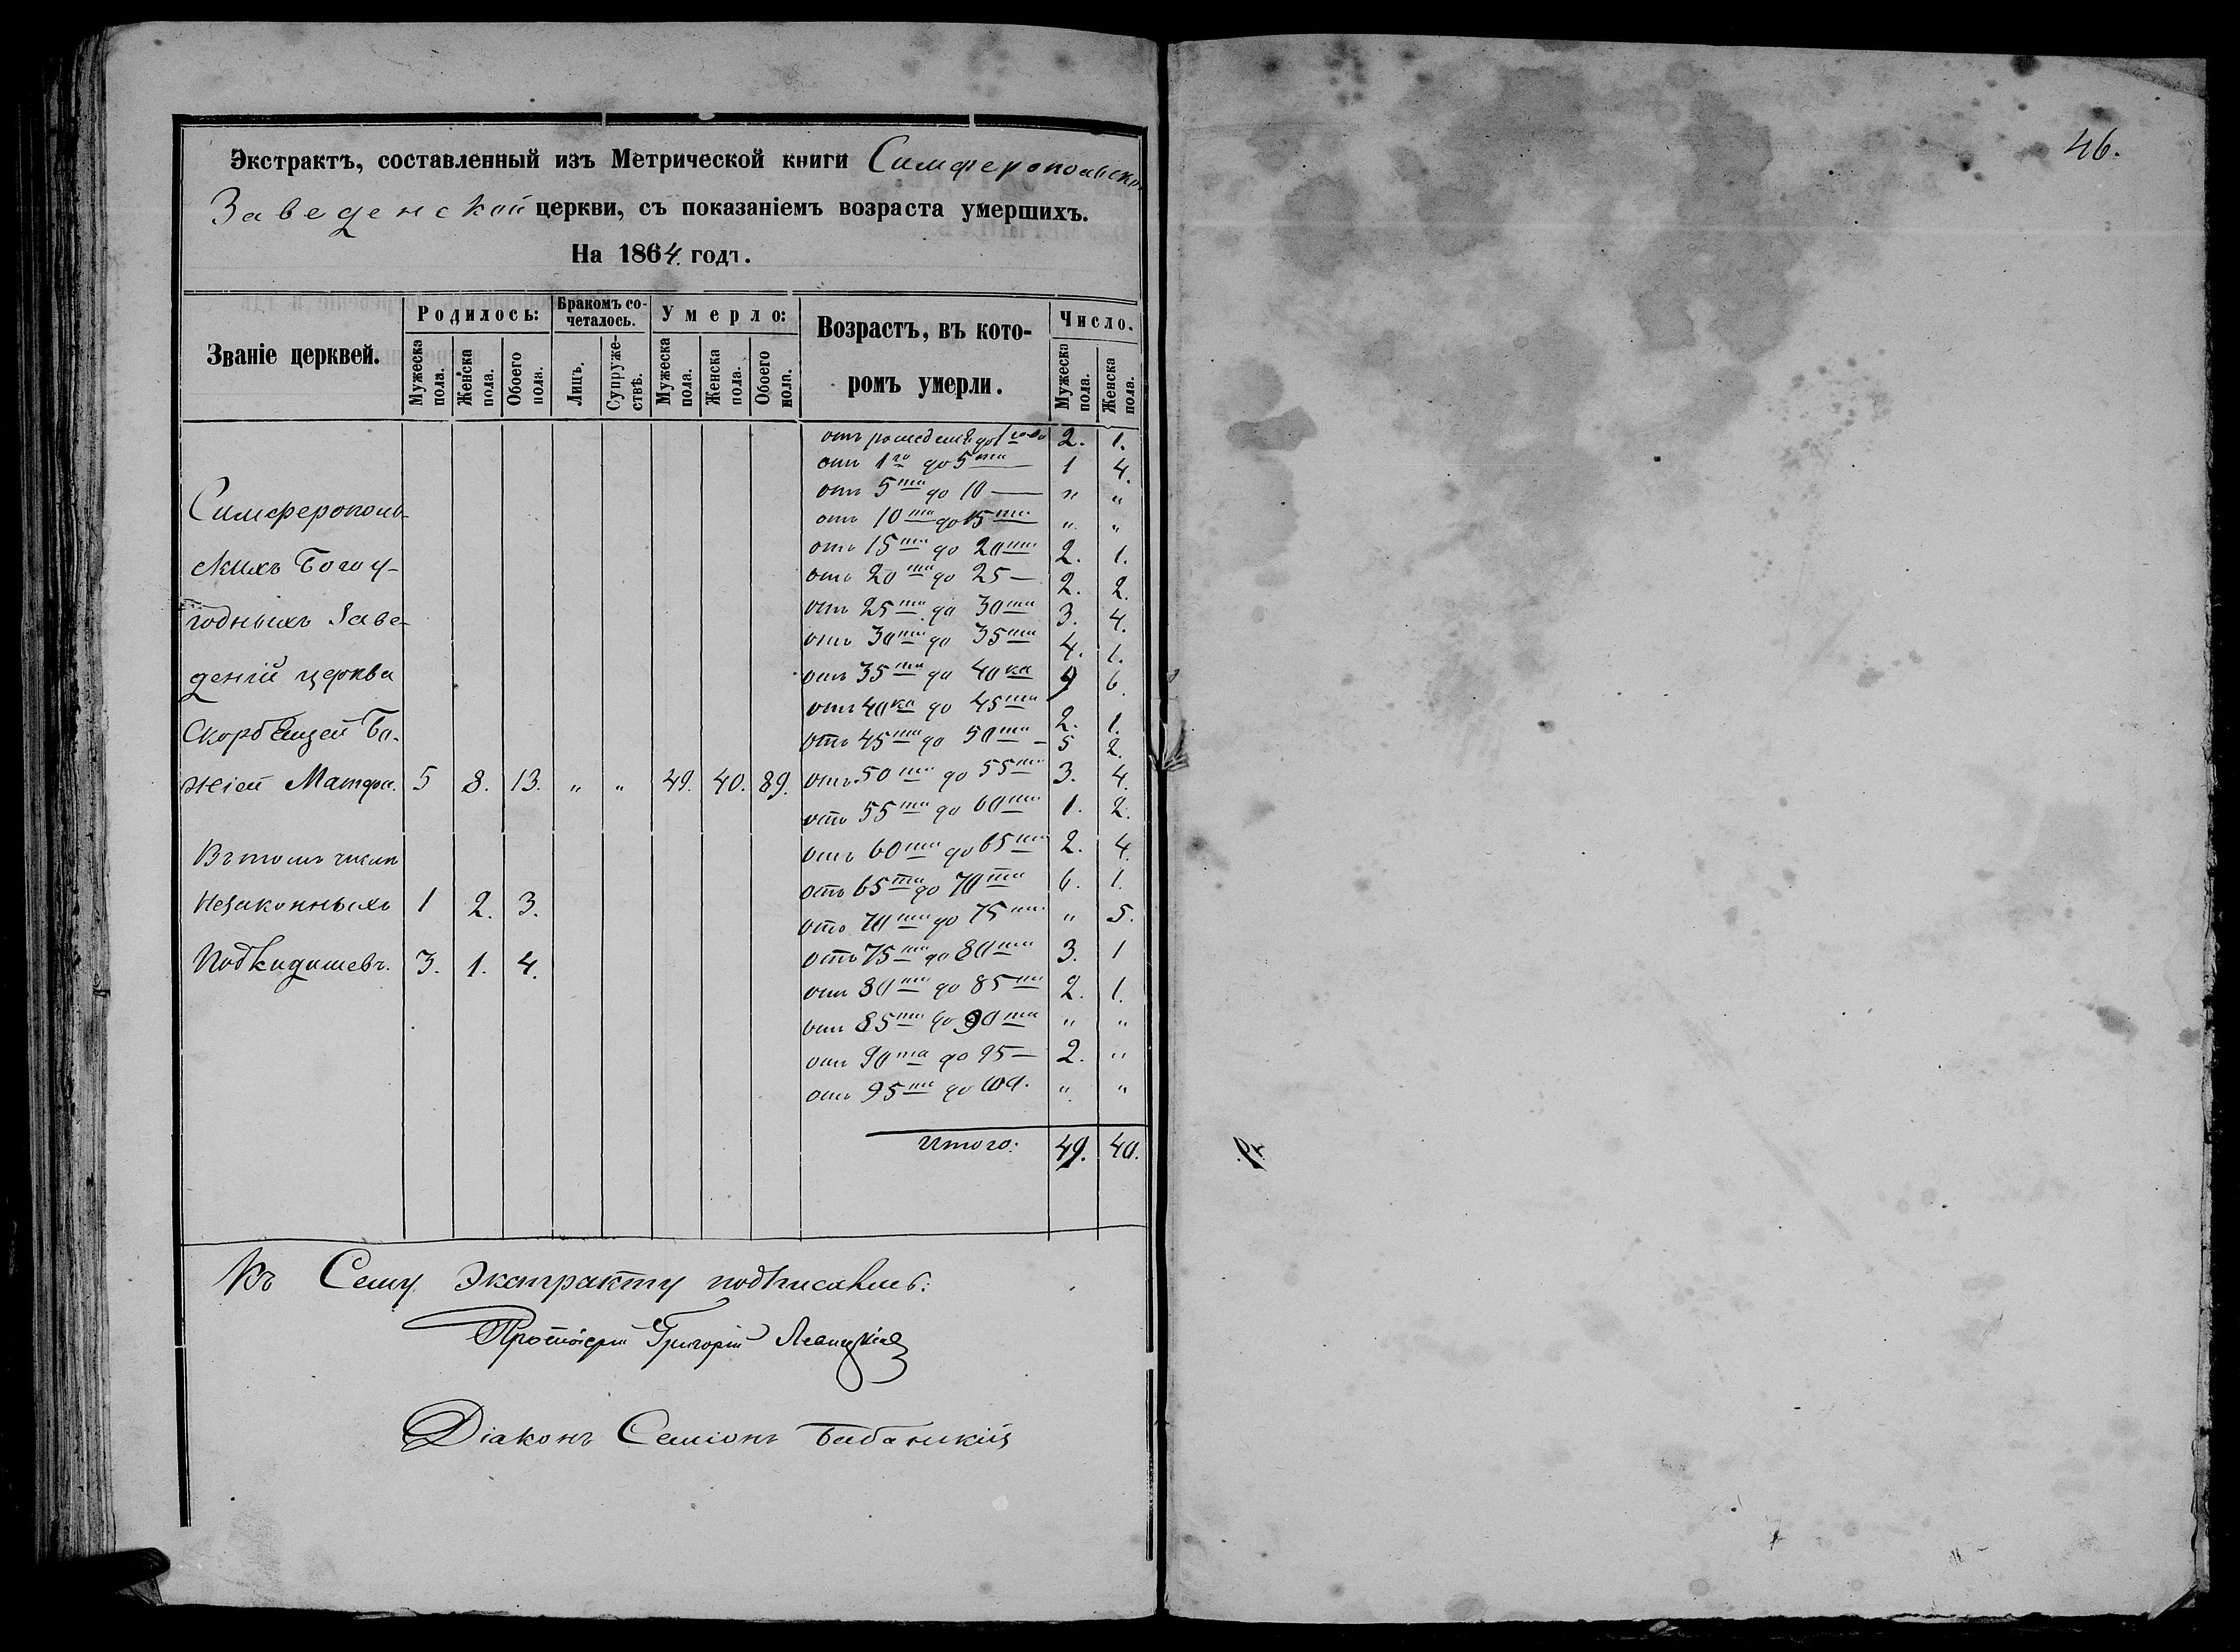 Экстрактъ, составленный изъ Метрической книги Симферопольской
Заведенской церкви, съ показаніемъ возраста умершихъ.
На 1864. годъ.
Званіе церквей.
Родилось:
Мужеска пола.
Женска пола.
Обоего пола.
Бракомъ со-
четалось.
Лицъ.
Супруже-
ствъ.
Умерло:
Мужеска пола.
Женска пола.
Обоего пола.
Возрастъ, въ кото-
ромъ умерли.
Число.
Мужеска пола.
Женска пола.
отъ рожденія до 1 года 2. 1.
отъ 1го до 5ти 1 4.
отъ 5ти до 10 — „ „
отъ 10ти до 15ти „ „
отъ 15ти до 20ти 2. 1.
отъ 20ти до 25 — 2. 2.
отъ 25ти до 30ти 3. 4.
отъ 30ти до 35ти 4. 1.
отъ 35ти до 40ка 9 6.
отъ 40ка до 45ти 2. 1.
отъ 45ти до 50ти — 5 2.
отъ 50ти до 55ти 3. 4.
отъ 55ти до 60ти 1. 2.
отъ 60ти до 65ти 2. 4.
отъ 65ти до 70ти 6. 1.
отъ 70ти до 75ти „ 5.
отъ 75ти до 80ти 3. 1
отъ 80ти до 85ти 2. 1.
отъ 85ти до 90та „ „
отъ 90та до 95 — 2. „
отъ 95ти до 100. „ „
Итого: 49. 40.
Симферополь-
скихъ Богоу-
годныхъ Заве-
деній церква
Скорбящей Бо-
жіей Матери. 5 8. 13. „ „ 49. 40. 89.
Въ томъ числѣ
Незаконныхъ 1 2. 3.
Подкидышевъ. 3. 1. 4.
Къ Сему Экстракту подписались:
Протоіерей Григорій
Діаконъ Семіонъ
46.